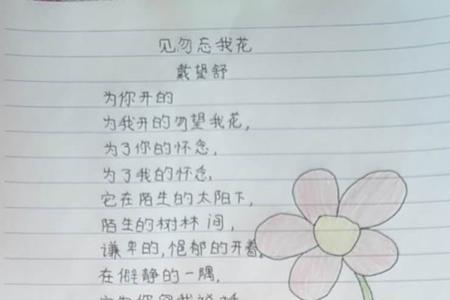 见勿忘我花
戴望舒
为你开的
为我开的勿望我花,
为了你的怀念,
为了我的怀念,
它在陌生的太阳下,
陌生的树林间,
谦卑的,悒郁的开着,
在僻静的一隅,
它为你向我说话